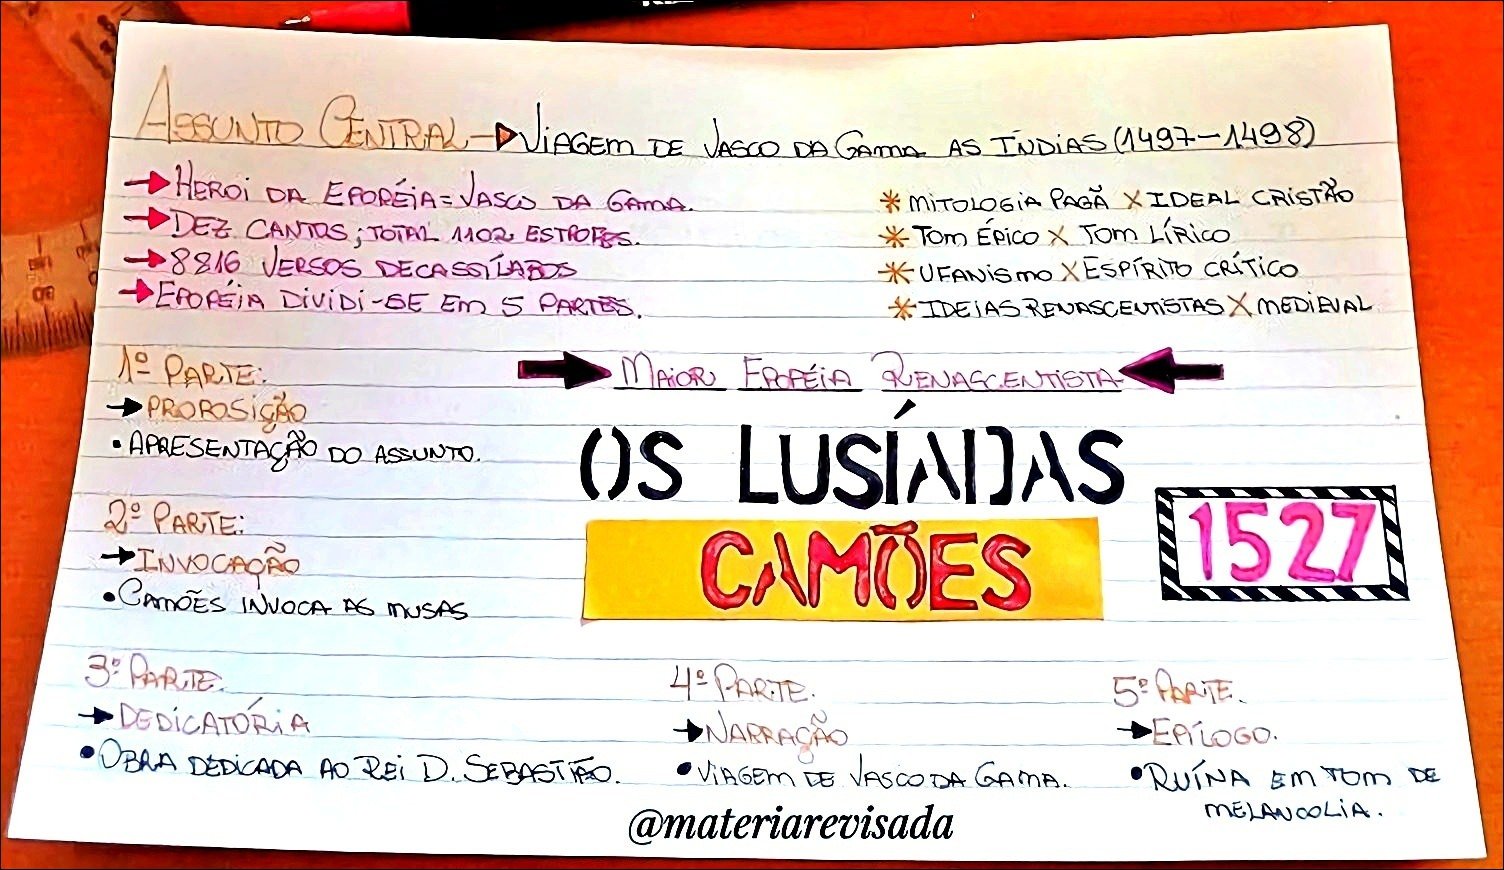 ASSUNTO CENTRAL → VIAGEM DE VASCO DA GAMA AS ÍNDIAS (1497-1498)
→ HEROI DA EPOPÉIA = VASCO DA GAMA.
→ DEZ CANTOS; TOTAL 1102 ESTROFES.
→ 8816 VERSOS DECASSÍLABOS
→ EPOPÉIA DIVIDI-SE EM 5 PARTES.
* MITOLOGIA PAGÃ X IDEAL CRISTÃO
* TOM ÉPICO X TOM LÍRICO
* UFANISMO X ESPÍRITO CRÍTICO
* IDEIAS RENASCENTISTAS X MEDIEVAL
→ MAIOR EPOPÉIA RENASCENTISTA ←
OS LUSÍADAS
CAMÕES
1527
1º PARTE:
→ PROPOSIÇÃO
• APRESENTAÇÃO DO ASSUNTO.
2º PARTE:
→ INVOCAÇÃO
• CAMÕES INVOCA AS MUSAS
3º PARTE.
→ DEDICATÓRIA
• OBRA DEDICADA AO REI D. SEBASTIÃO.
4º PARTE.
→ NARRAÇÃO
• VIAGEM DE VASCO DA GAMA.
5º PARTE.
→ EPÍLOGO.
• RUÍNA EM TOM DE
MELANCOLIA.
@materiarevisada